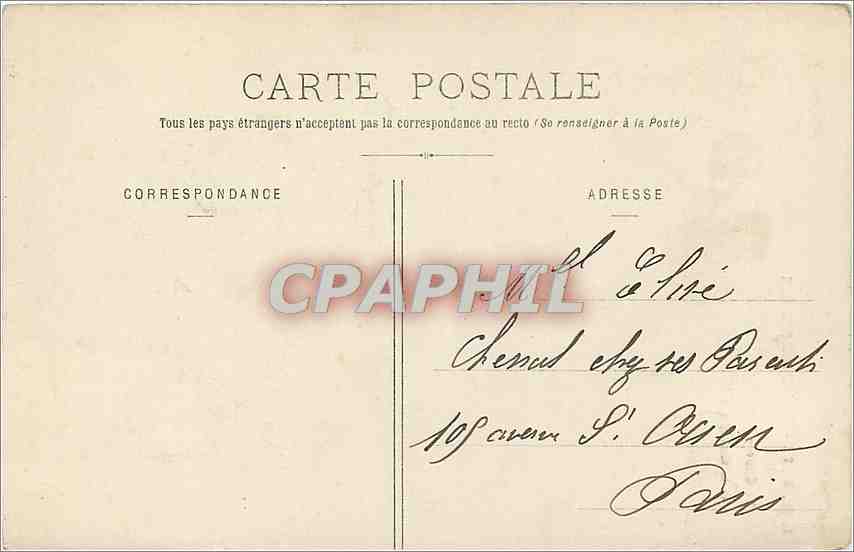 CARTE POSTALE
Tous les pays étrangers n'acceptent pas la correspondance au recto (Se renseigner à la Poste)
CORRESPONDANCE
ADRESSE
CPAPHIL
Mel Elisé
chez ses Parents
105 avenue St Ouen
Paris